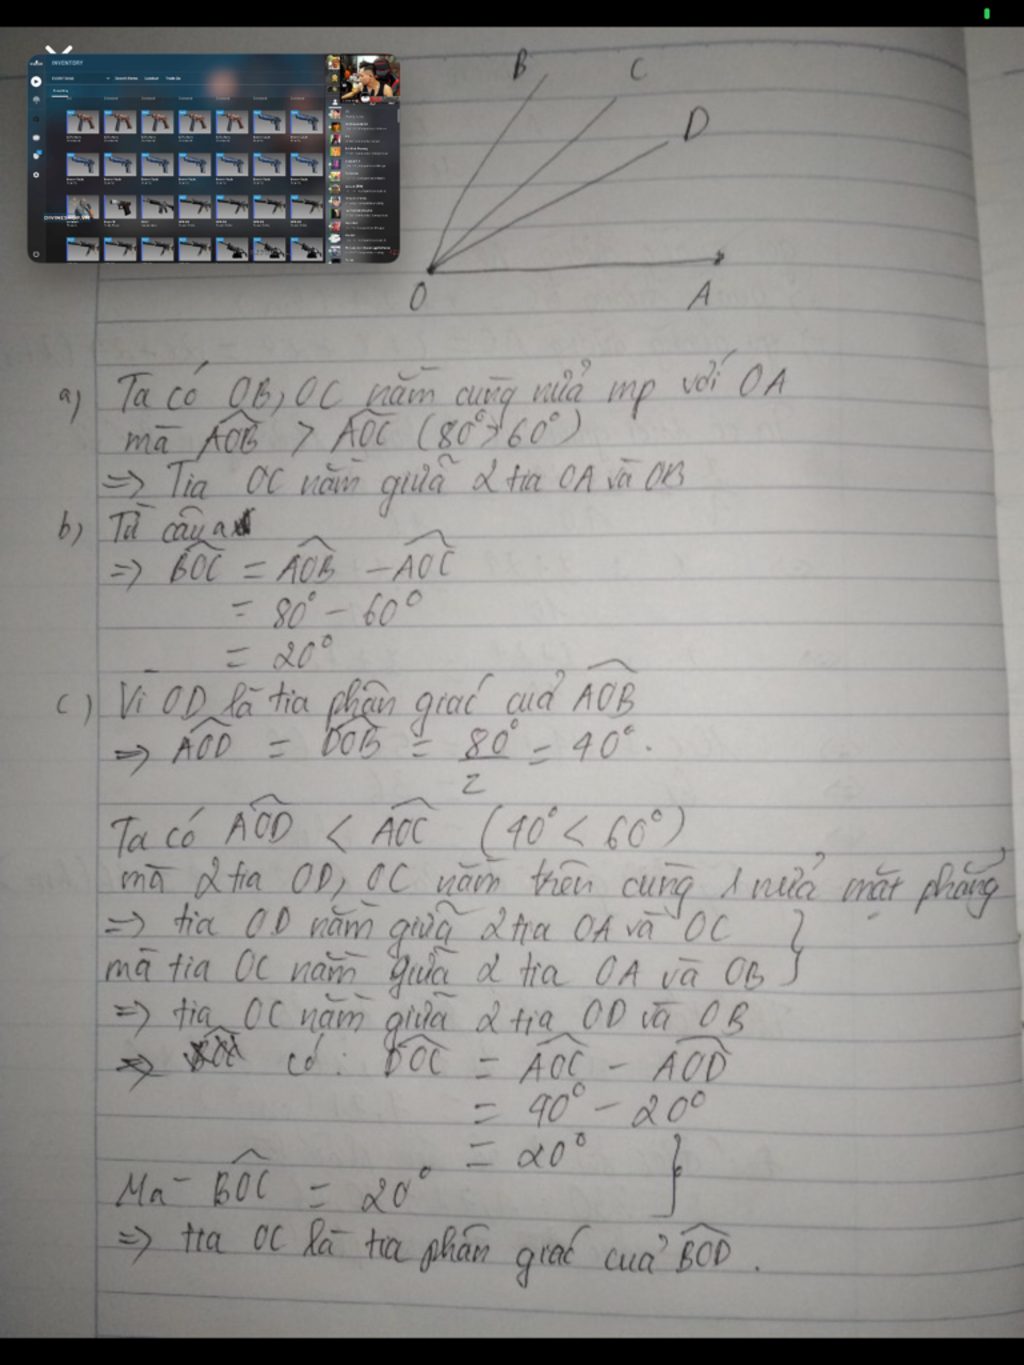 INVENTORY
DIVINESHOP.VN
B
C
D
O
A
a) Ta có OB, OC nằm cùng nửa mp với OA
mà AOB > AOC (80° > 60°)
=> Tia OC nằm giữa 2 tia OA và OB
b) Từ câu a
=> BOC = AOB - AOC
= 80° - 60°
= 20°
c) Vì OD là tia phân giác của AOB
=> AOD = DOB = 80°/2 = 40°.
Ta có AOD < AOC (40° < 60°)
mà 2 tia OD, OC nằm trên cùng 1 nửa mặt phẳng
=> tia OD nằm giữa 2 tia OA và OC }
mà tia OC nằm giữa 2 tia OA và OB
=> tia OC nằm giữa 2 tia OD và OB
=> có: DOC = AOC - AOD
= 40° - 20°
= 20° }
Mà BOC = 20°
=> tia OC là tia phân giác của BOD.